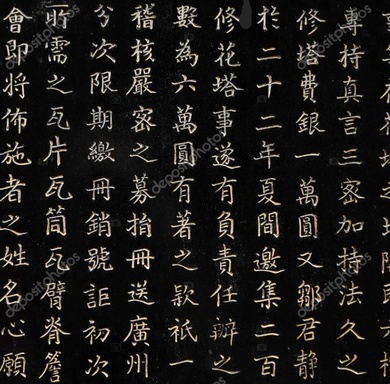 專持真言三密加持法久之
修塔費銀一萬圓又鄒君静
於二十二年夏間邀集二百
修花塔事遂有負責任辦之
數為六萬圓有著之款祇一
稽核嚴密之募捐冊送廣州
兮次限期繳冊銷號詎初次
所需之瓦片瓦筒瓦臂脊簷
會即將佈施者之姓名心願
depositphotos